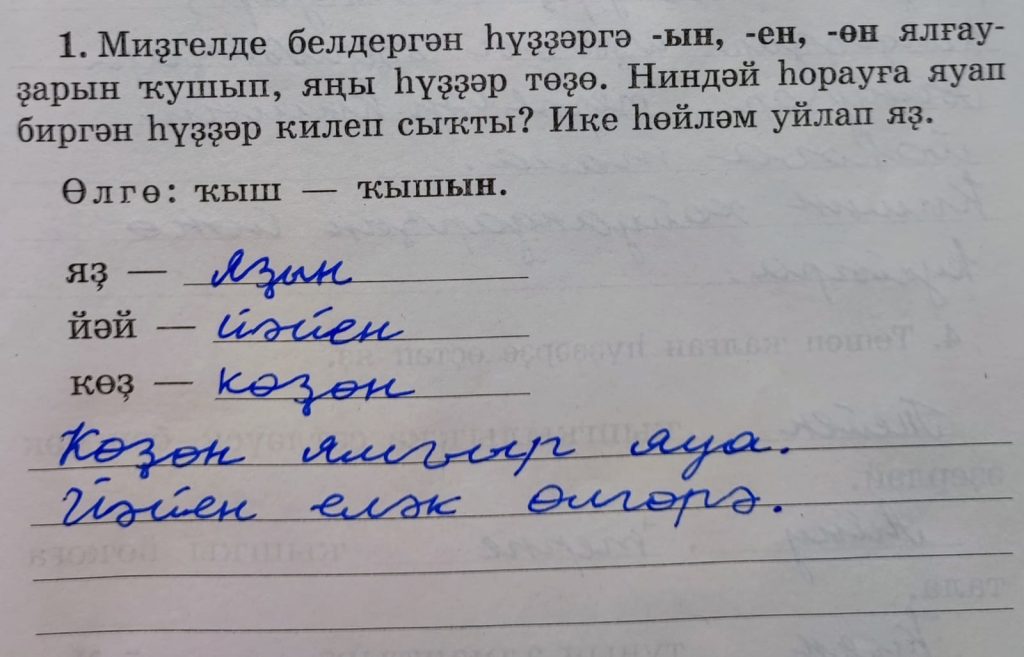 1. Миҙгелде белдергән һүҙҙәргә -ын, -ен, -өн ялғау-
ҙарын ҡушып, яңы һүҙҙәр төҙө. Ниндәй һорауға яуап
биргән һүҙҙәр килеп сыҡты? Ике һөйләм уйлап яҙ.
Өлгө: ҡыш — ҡышын.
яҙ — яҙын
йәй — йәйен
көҙ — көҙөн
Көҙөн ямғыр яуа.
Йәйен еләк өлгөрә.